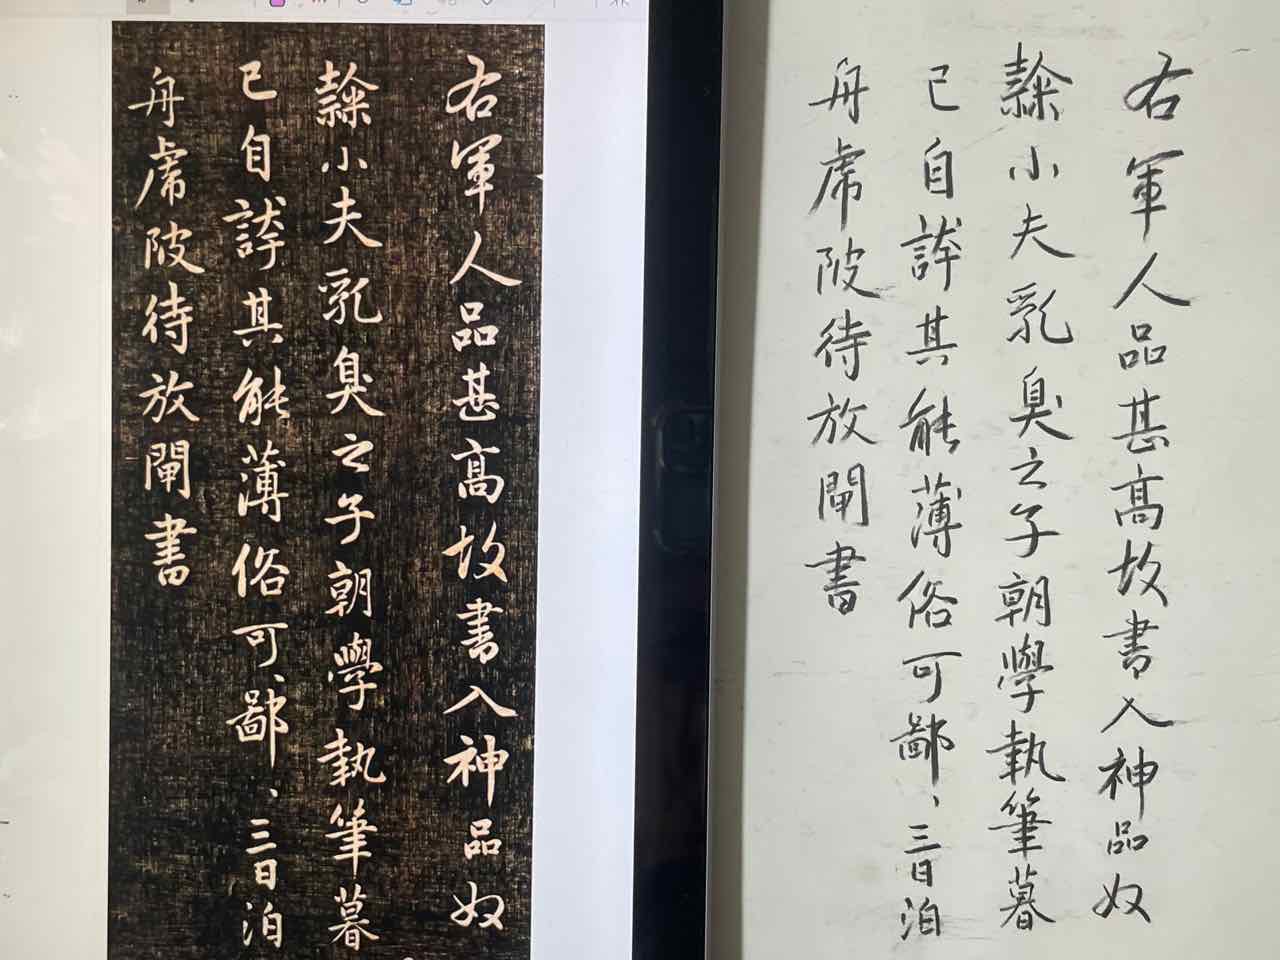 右軍人品甚高故書入神品奴
隸小夫乳臭之子朝學執筆暮
已自誇其能薄俗可、鄙、三日泊
舟虎陂待放閘書
右軍人品甚高故書入神品奴
隸小夫乳臭之子朝學執筆暮
已自誇其能薄俗可鄙、三日泊
舟虎陂待放閘書